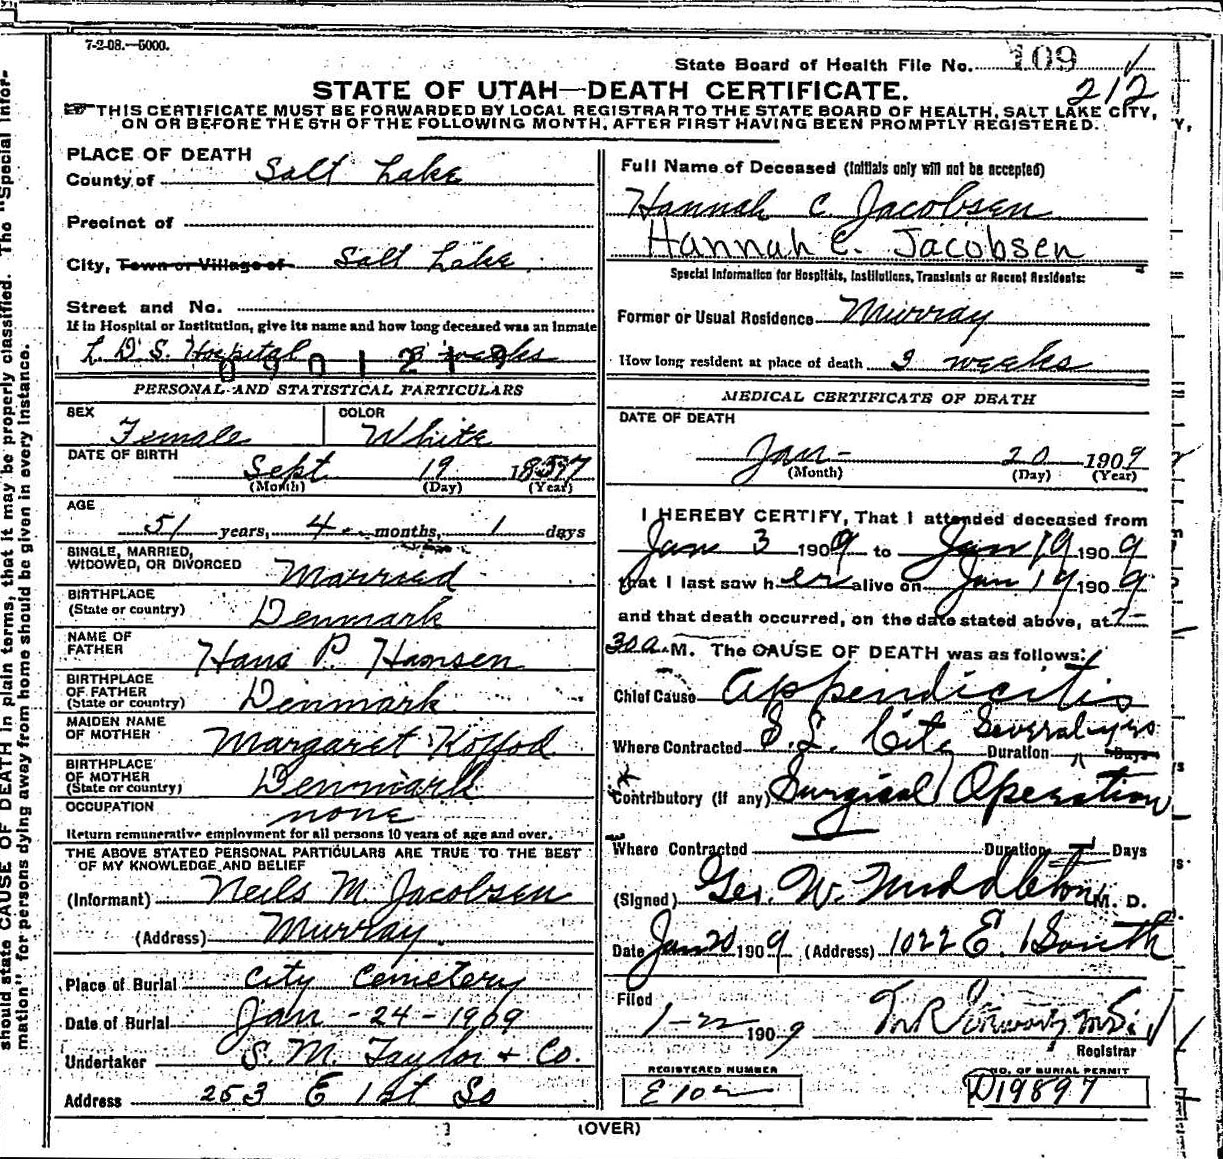 7-2-08.—5000.
State Board of Health File No. 109
212
STATE OF UTAH—DEATH CERTIFICATE.
THIS CERTIFICATE MUST BE FORWARDED BY LOCAL REGISTRAR TO THE STATE BOARD OF HEALTH, SALT LAKE CITY,
ON OR BEFORE THE 5TH OF THE FOLLOWING MONTH, AFTER FIRST HAVING BEEN PROMPTLY REGISTERED.
PLACE OF DEATH
County of Salt Lake
Precinct of
City, Town or Village of Salt Lake
Street and No.
If in Hospital or Institution, give its name and how long deceased was an inmate
L. D. S. Hospital weeks
PERSONAL AND STATISTICAL PARTICULARS
SEX Female
COLOR White
DATE OF BIRTH
Sept 19 1857
(Month) (Day) (Year)
AGE
51 years, 4 months, 1 days
SINGLE, MARRIED,
WIDOWED, OR DIVORCED Married
BIRTHPLACE
(State or country) Denmark
NAME OF
FATHER Hans P. Hansen
BIRTHPLACE
OF FATHER
(State or country) Denmark
MAIDEN NAME
OF MOTHER Margaret Koffod
BIRTHPLACE
OF MOTHER
(State or country) Denmark
OCCUPATION
none
Return remunerative employment for all persons 10 years of age and over.
THE ABOVE STATED PERSONAL PARTICULARS ARE TRUE TO THE BEST
OF MY KNOWLEDGE AND BELIEF
(Informant) Neils M. Jacobsen
(Address) Murray.
Place of Burial City Cemetery
Date of Burial Jan - 24 - 1909
Undertaker S. M. Taylor + Co.
Address 253 E 1st So
Full Name of Deceased (Initials only will not be accepted)
Hannah C. Jacobsen
Hannah C. Jacobsen
Special Information for Hospitals, Institutions, Transients or Recent Residents:
Former or Usual Residence Murray
How long resident at place of death weeks
MEDICAL CERTIFICATE OF DEATH
DATE OF DEATH
Jan - 20 1909
(Month) (Day) (Year)
I HEREBY CERTIFY, That I attended deceased from
Jan 3 1909 to Jan 19 1909
that I last saw her alive on Jan 19 1909
and that death occurred, on the date stated above, at 7-
30 a. M. The CAUSE OF DEATH was as follows:
Chief Cause Appendicitis
Where Contracted S. L. City Duration Several yrs Days
Contributory (if any) Surgical Operation
Where Contracted Duration Days
(Signed) Geo. W. Middleton M. D.
Date Jan 20 1909 (Address) 1022 E. 1 South
Filed
1-22 1909
Registrar
REGISTERED NUMBER
E 102
NO. OF BURIAL PERMIT
D19897
(OVER)
should state CAUSE OF DEATH in plain terms, that it may be properly classified. The "Special Infor-
mation" for persons dying away from home should be given in every instance.